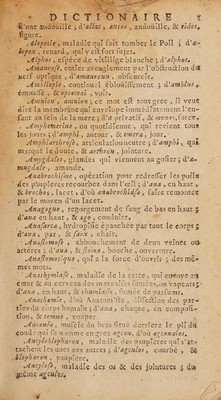 DICTIONAIRE
d'une andouille; d'allas, antos, andouille, & eidos,
figure.
Alopecie, maladie qui fait tomber le Poil; d'a-
lopex, renard, qui y est fort sujet.
Alphos, espéce de vieillige blanche; d'alphos.
Amaurose, entiére aveuglement par l'obstruction du
nerf optique; d'amauroun, obscurcir.
Ambliopie, continuel éblouissement; d'amblus,
émoussé, & opomai, vois.
Amnion, amnion; ce mot est tout grec, il veut
dire la membrane qui envelope immédiatement l'en-
fant au sein de la mere; d'a privatif, & menos, force.
Amphemerinos, ou quotidienne, qui revient tous
les jours; d'amphi, autour, & emera, jour.
Amphiarthrose, articulation neutre; d'amphi, qui
marque le doute, & arthron, jointure.
Amygdales, glandes qui viennent au gosier; d'a-
mugdale, amande.
Anabrochisme, opération pour redresser les poils
des paupieres recourbez dans l'œil; d'ana, en haut,
& brochos, lacet, d'où anabrochidzo, faire remonter
par le moyen d'un lacet.
Anagogue, regorgement de sang de bas en haut;
d'ana en haut, & ago, conduire.
Anasarca, hydropisie épanchée par tout le corps;
d'ana, par, & sarx, chair.
Anastomose, abbouchement de deux veines ou
artéres; d'ana, & stoma, bouche, ouverture.
Anastomotique, qui a la force d'ouvrir; des mê-
mes mots.
Anathymiase, maladie de la carte, qui envoye au
cœur & au cerveau des mauvaises fumées, ou vapeurs;
d'ana, en haut, & thumiasis, fumée de parfums.
Anatomie, d'où Anatomiste, dissection des par-
ties du corps humain; d'ana, chaque, en composi-
tion, & temno, couper.
Anconée, muscle du bras situé derriere le pli du
coude qui se nomme en grec agcon, d'où agconaios.
Ancyloblepharon, maladie des paupieres qui s'at-
tachent les unes aux autres; d'agculos, courbé, &
blepharon, paupiere.
Ancylose, maladie des os & des jointures; du
même agculos.